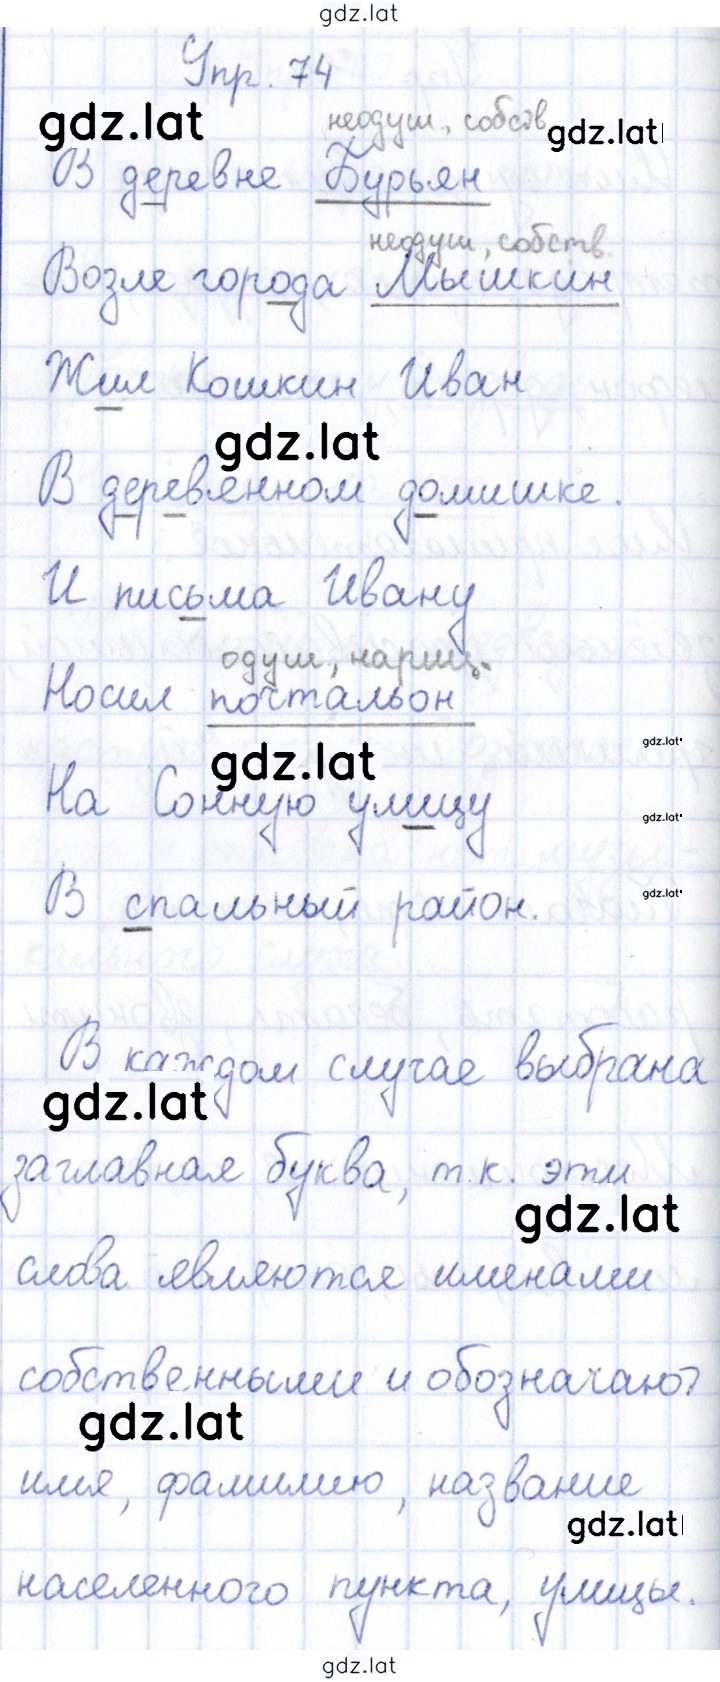 gdz.lat
Упр. 74
gdz.lat
неодуш., собств
gdz.lat
В деревне Бурьян
неодуш., собств.
Возле города Мышкин
Жил Кошкин Иван
gdz.lat
В деревянном домишке.
И письма Ивану
одуш., нариц.
Носил почтальон
gdz.lat
gdz.lat
На Сонную улицу
gdz.lat
В спальный район.
gdz.lat
В каждом случае выбрана
gdz.lat
заглавная буква, т.к. эти
gdz.lat
слова являются именами
собственными и обозначают
gdz.lat
имя, фамилию, название
gdz.lat
населенного пункта, улицы.
gdz.lat